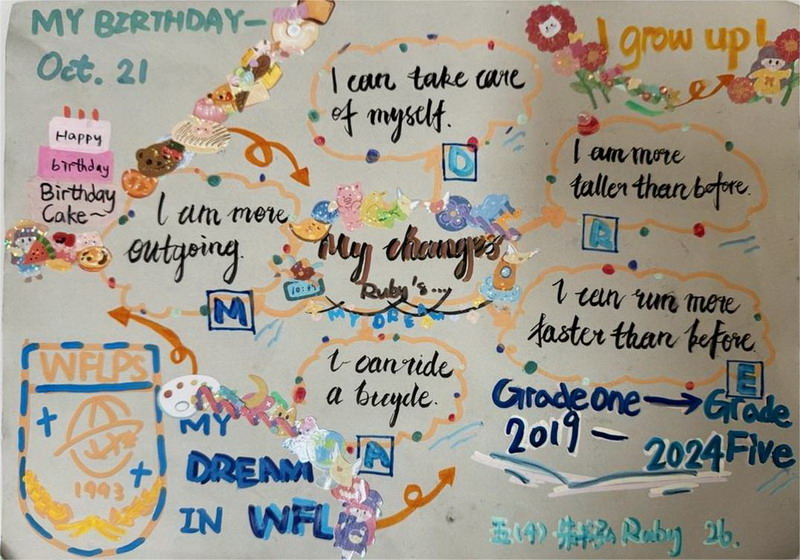 MY BIRTHDAY—
Oct. 21
I grow up!
Happy
birthday
Birthday
Cake~
I can take care
of myself.
D
I am more
taller than before.
R
I am more
outgoing.
M
My changes
Ruby's...
MY DREAM
I can run more
faster than before.
E
I can ride
a bicycle.
A
WFLPS
1993
MY
DREAM
IN WFL
Grade one → Grade Five
2019 — 2024
五(4) Ruby 26.